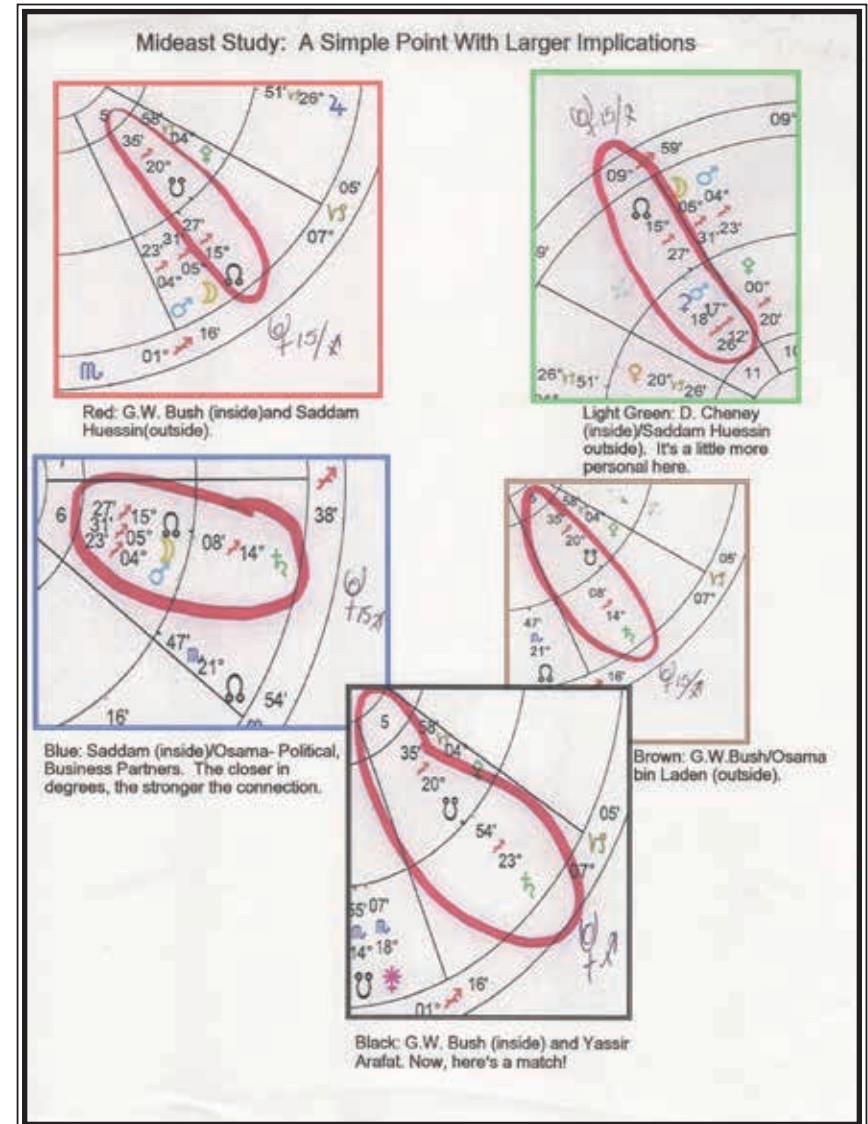 Mideast Study: A Simple Point With Larger Implications
51' ♑ 26° ♃
5 58' ♑ 04° ♀
35' ♐ 20° ☋
05' ♑ 07°
27' ♐ 15° ☊
31' ♐ 05° ☽
23' ♐ 04° ♂
♏ 01° ♐ 16'
15/♐
Red: G.W. Bush (inside)and Saddam
Huessin(outside).
15/♐
09° ♐ 59'
09°
☊ 15° ♐ 27'
☽ 05° ♐ 31'
♂ 04° ♐ 23'
♀ 00° ♐ 20'
♂ 17° ♐ 12'
18° ♐ 26'
26° ♑ 51'
♀ 20° ♑ 26'
11
Light Green: D. Cheney
(inside)/Saddam Huessin
outside). It's a little more
personal here.
6
27' ♐ 15° ☊
31' ♐ 05° ☽
23' ♐ 04° ♂
08' ♐ 14° ♄
♐ 38'
15♐
47' ♏ 21° ☊
54'
16'
Blue: Saddam (inside)/Osama- Political,
Business Partners. The closer in
degrees, the stronger the connection.
58' ♑ 04° ♀
35' ♐ 20° ☋
05' ♑ 07°
08' ♐ 14° ♄
47' ♏ 21° ☊
♐ 16'
15/♐
Brown: G.W.Bush/Osama
bin Laden (outside).
5 58' ♑ 04° ♀
35' ♐ 20° ☋
54' ♐ 23° ♄
05' ♑ 07°
55' ♏ 14° ☋
07' ♏ 18°
01° ♐ 16'
Black: G.W. Bush (inside) and Yassir
Arafat. Now, here's a match!